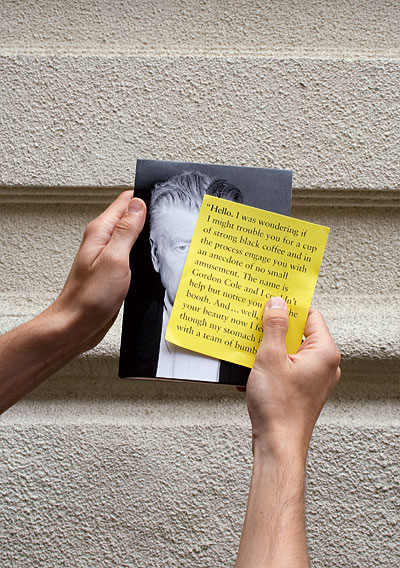 "Hello. I was wondering if
I might trouble you for a cup
of strong black coffee and in
the process engage you with
an anecdote of no small
amusement. The name is
Gordon Cole and I
help but notice you
booth. And … well,
your beauty now I
though my stomach
with a team of